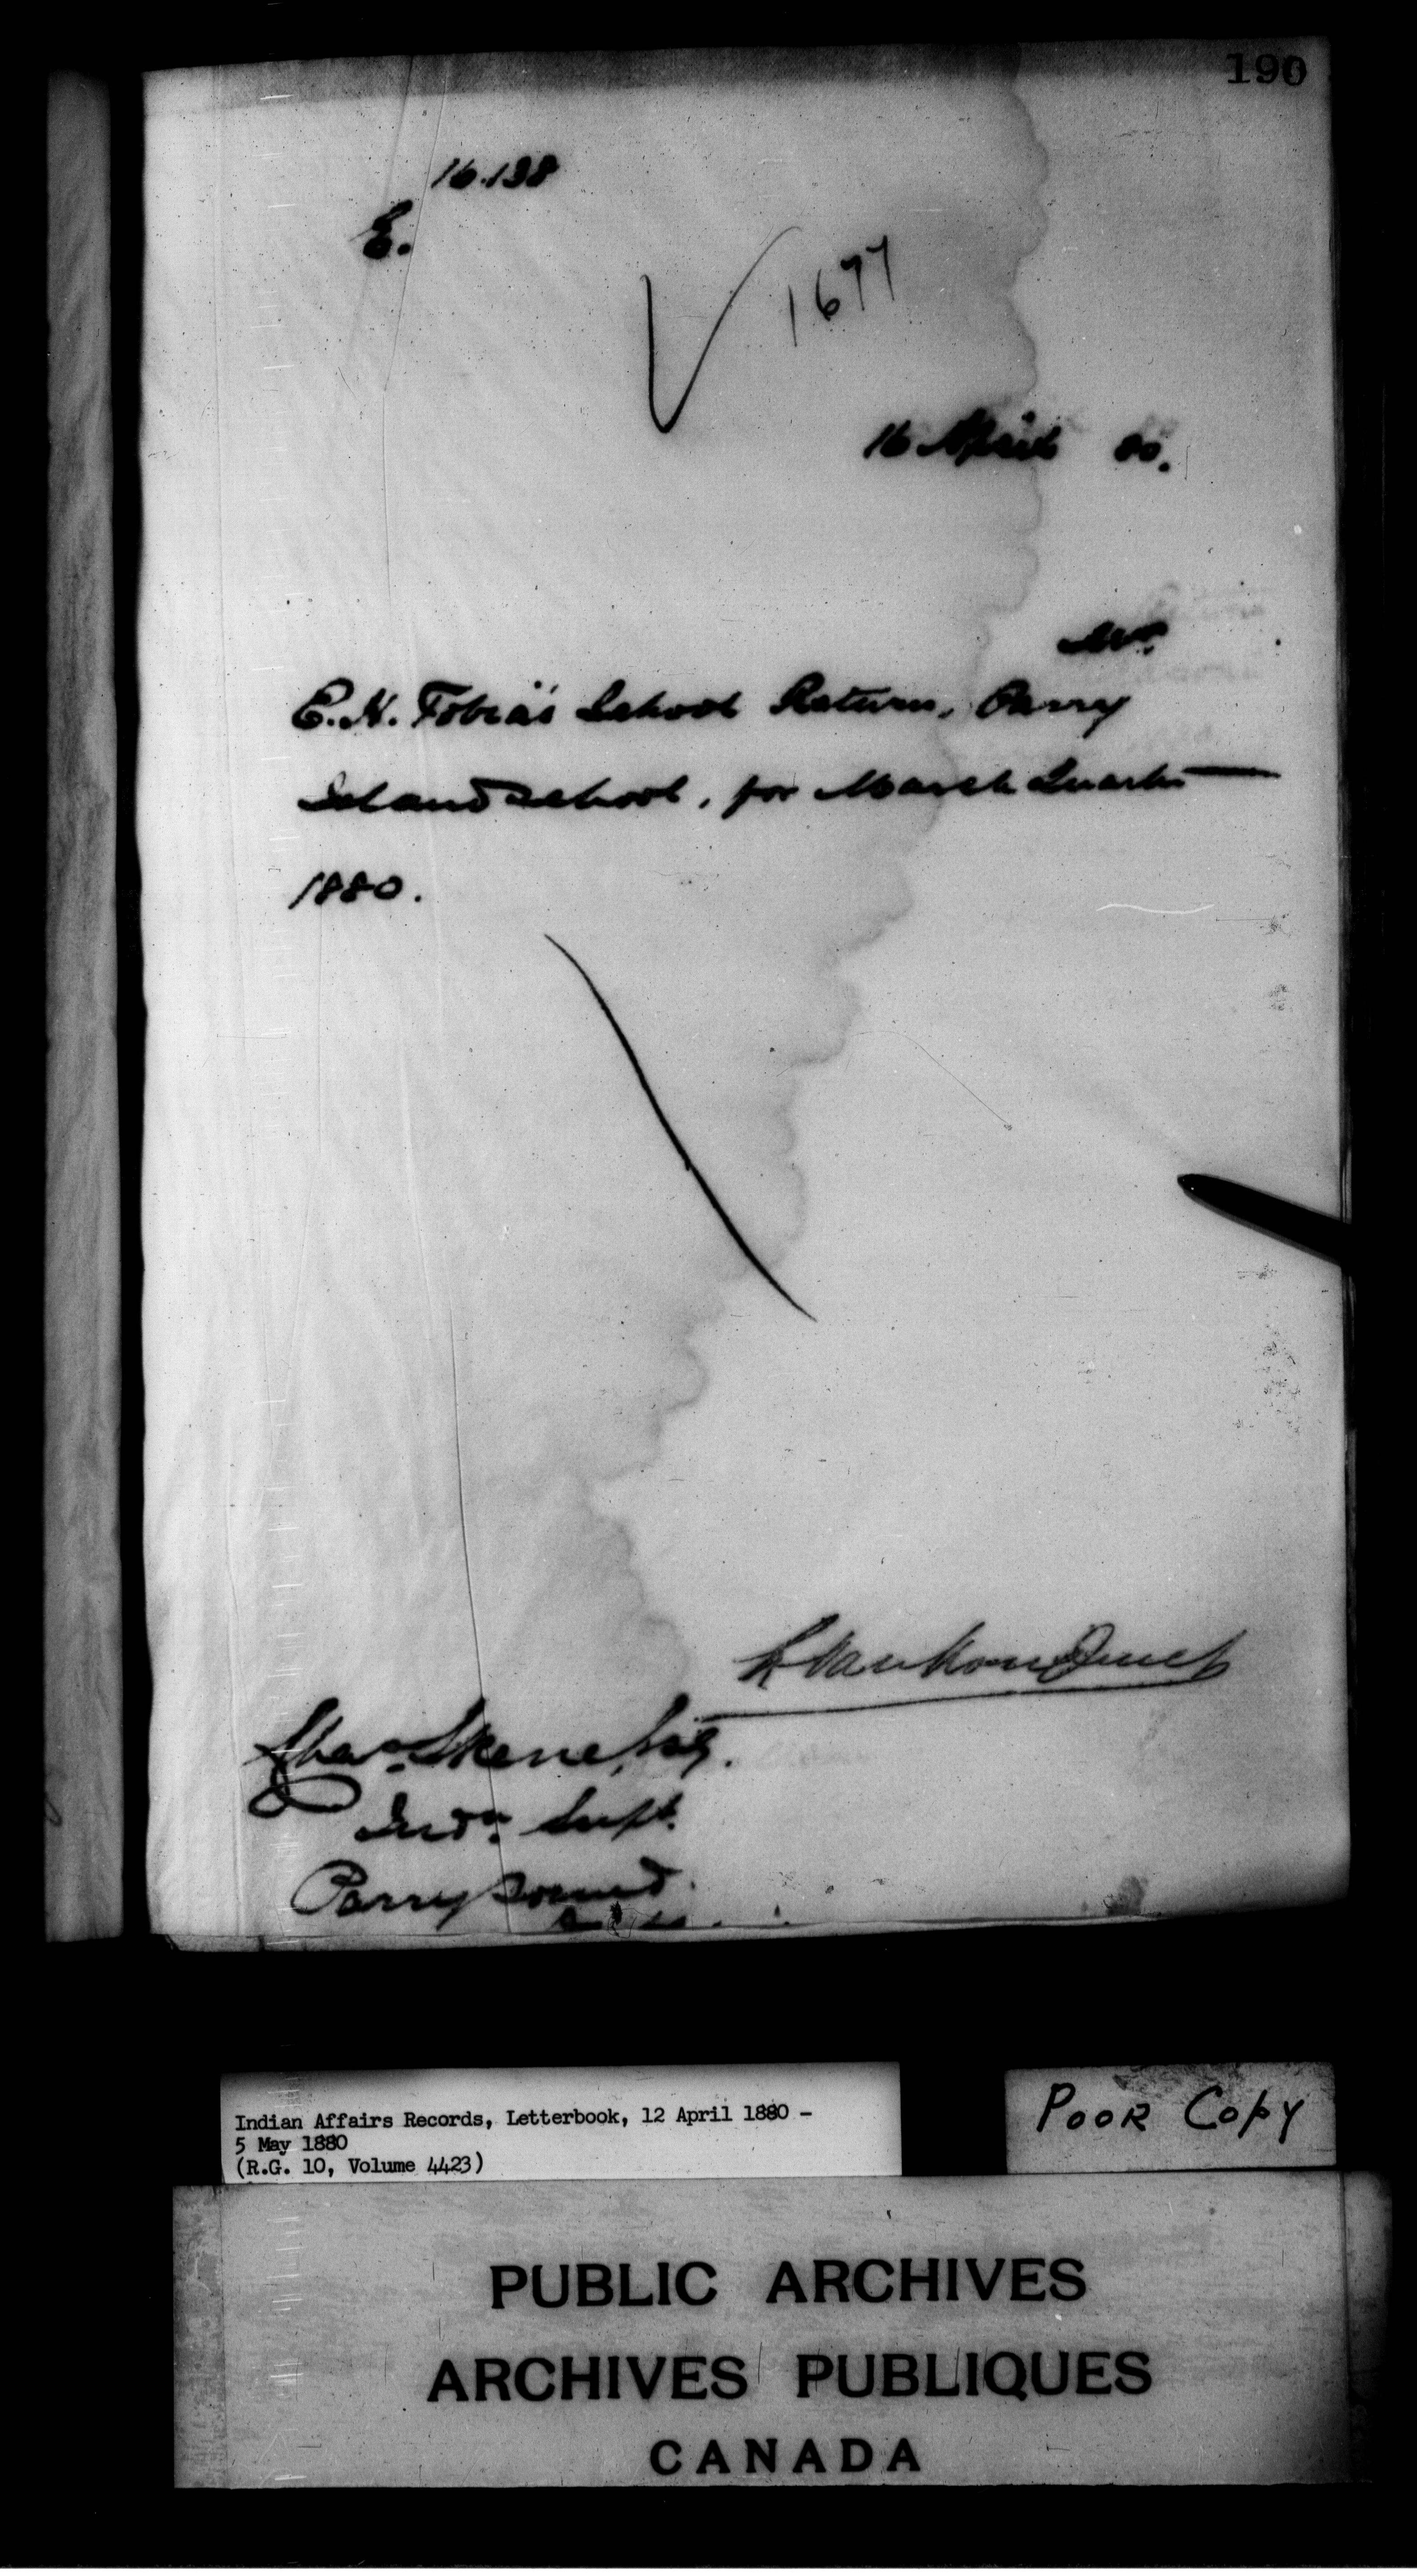 190
16.138
E.
1677
16 April 80.
Mr.
E. H. Tobias' School Return, Parry
Island School, for March Quarter
1880.
L Vankoughnet
Chas. Skene, Esq.
Indn. Supt.
Parry Sound.
Indian Affairs Records, Letterbook, 12 April 1880 -
5 May 1880
(R.G. 10, Volume 4423)
POOR COPY
PUBLIC ARCHIVES
ARCHIVES PUBLIQUES
CANADA